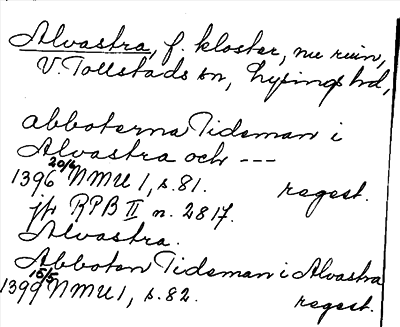 Alvastra, f. kloster, nu ruin,
V. Tollstads sn, Lysings hd,
abboterna Tideman i
Alvastra och ---
1396 20/6 NMU 1, s. 81. regest.
jfr RPB II n. 2817.
Alvastra.
Abboten Tideman i Alvastra
1399 15/5 NMU 1, s. 82. regest.